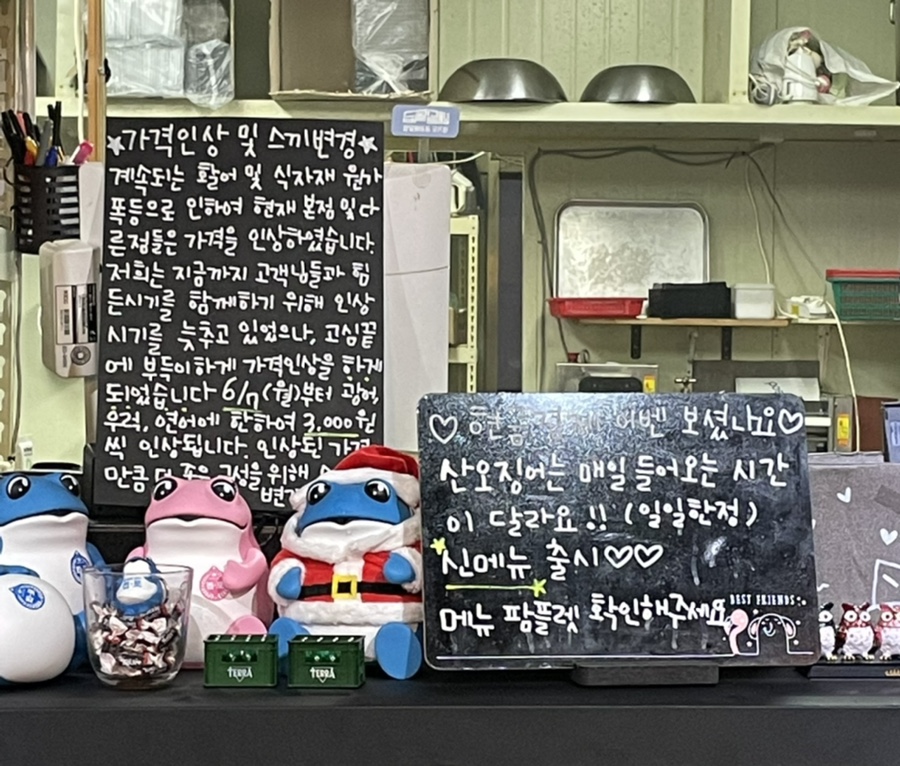 ★가격인상 및 스끼변경★
계속되는 활어 및 식자재 원가
폭등으로 인하여 현재 본점 및 다
른점들은 가격을 인상하였습니다.
저희는 지금까지 고객님들과 힘
든시기를 함께하기 위해 인상
시기를 늦추고 있었으나, 고심끝
에 부득이하게 가격인상을 하게
되었습니다 6/17(월)부터 광어,
우럭, 연어에 한하여 3,000원
씩 인상됩니다. 인상된 가격
만큼 더 좋은 구성을 위해
변경
♡ 현금 이벤 보셨나요♡
산오징어는 매일 들어오는 시간
이 달라요!! (일일한정)
신메뉴 출시♡♡
메뉴 팜플렛 확인해주세요
BEST FRIENDS
TERRA
TERRA